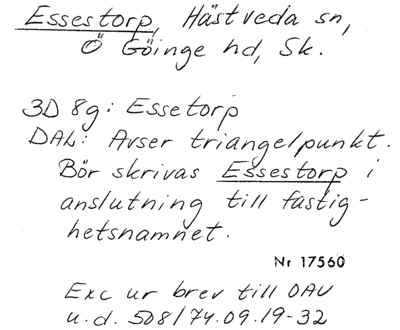 Essestorp, Hästveda sn,
Ö Göinge hd, Sk.
3D 8g: Essetorp
DAL: Avser triangelpunkt.
Bör skrivas Essestorp i
anslutning till fastig-
hetsnamnet.
Nr 17560
Exc ur brev till OAU
u.d. 508/74.09.19-32